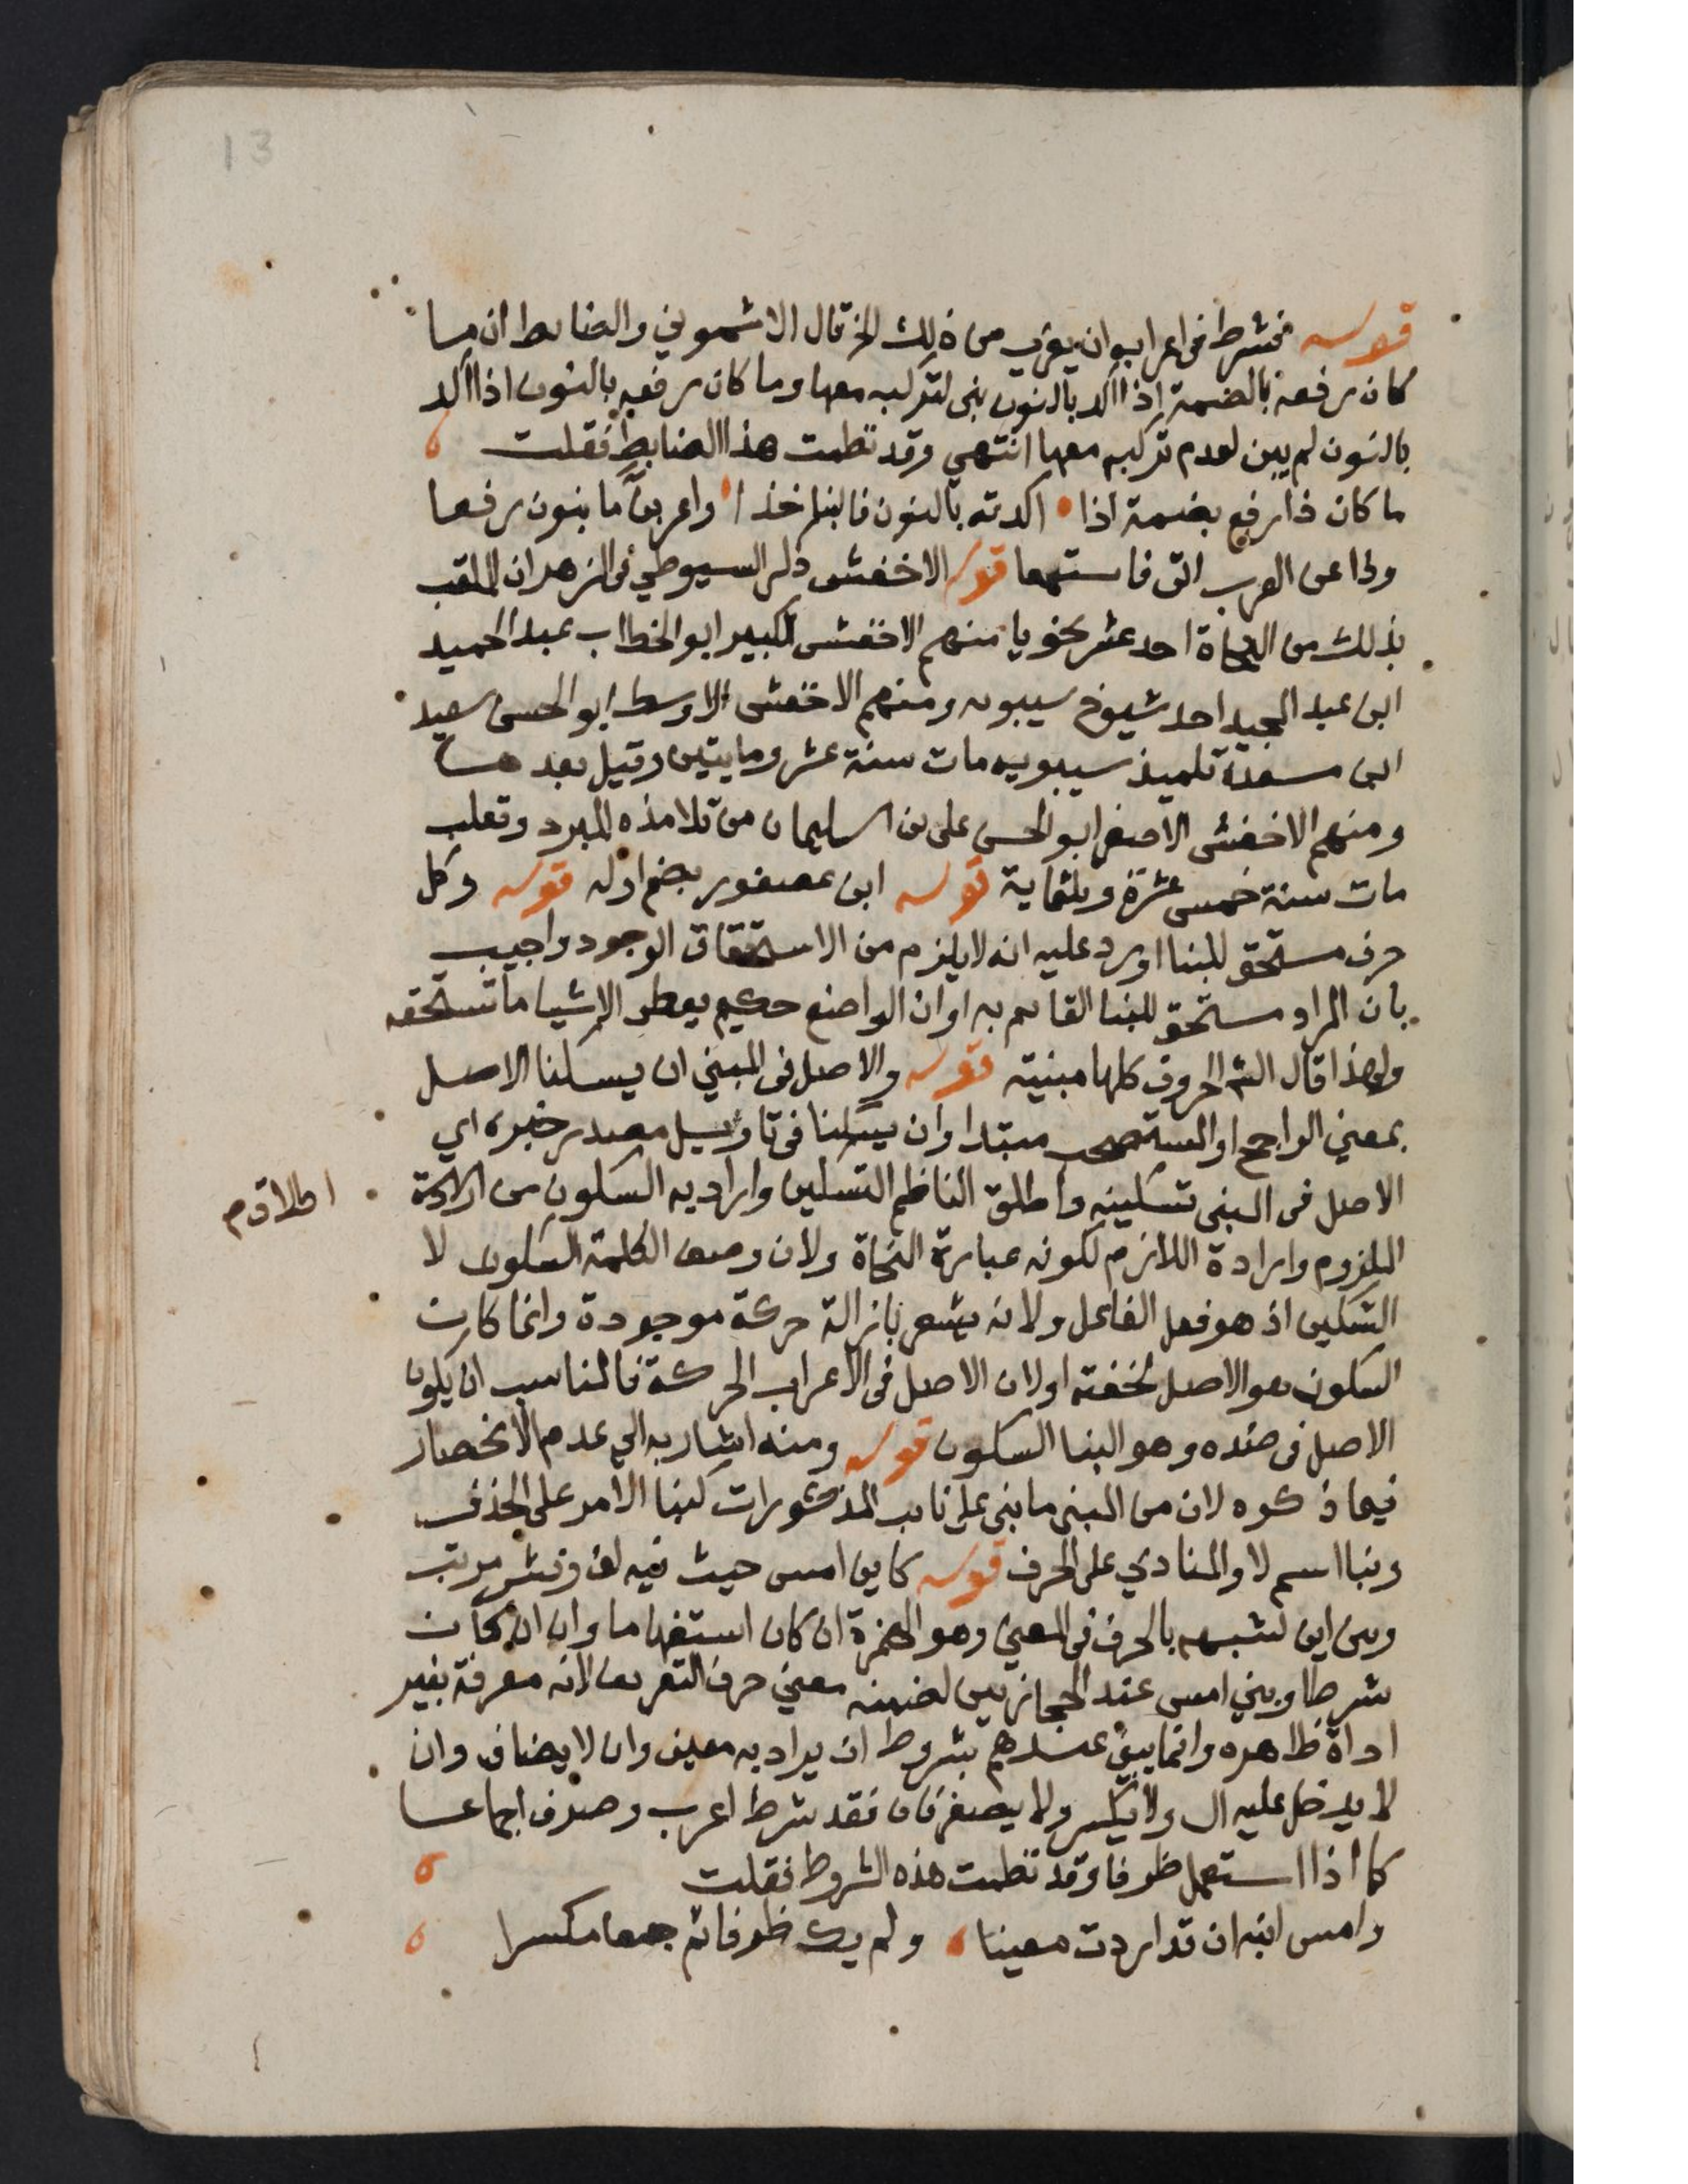 13
قوله فشرط فى اعرابه ان يعرى من ذلك الخ قال الاشموني والضابط ان ما
كان رفعه بالضمة إذا اكد بالنون بنى لتركبه معها وما كان رفعه بالنون اذا اكد
بالنون لم يبن لعدم تركبه معها انتهي وقد نظمت هذا الضابط فقلت
ما كان ذا رفع بضمة اذا اكدته بالنون فالبنا خذا واعربن ما بنون رفعا
وذا عن العرب اتى فاستمعا قوله الاخفش ذكر السيوطي فى المزهر ان الملقب
بذلك من النحاة احد عشر نحويا منهم الاخفش الكبير ابو الخطاب عبد الحميد
ابن عبد المجيد احد شيوخ سيبويه ومنهم الاخفش الاوسط ابو الحسن سعيد
ابن مسعدة تلميذ سيبويه مات سنة عشر ومايتين وقيل بعدها
ومنهم الاخفش الاصغر ابو الحسن على بن سليمان من تلامذه المبرد وثعلب
مات سنة خمس عشرة وثلثماية قوله ابن عصفور بضم اوله قوله وكل
حرف مستحق للبنا اورد عليه انه لا يلزم من الاستحقاق الوجود واجيب
بان المراد مستحق للبنا القايم به او ان الواضع حكيم يعطى الاشيا ما تستحقه
ولهذا قال الش الحروف كلها مبنية قوله والاصل فى المبني ان يسكنا الاصل
بمعني الراجح او المستصحب مبتدا وان يسكنا فى تاويل مصدر خبره اي
الاصل فى المبنى تسكينه واطلق الناظم التسكين واراد به السكون من ارادة
اطلاق م
الملزوم وارادة اللازم لكونه عبارة النحاة ولان وصف الكلمة السكون لا
التسكين اذ هو فعل الفاعل ولانه يشعر بازالة حركة موجودة وانما كان
السكون هو الاصل لخفته او لان الاصل فى الاعراب الحركة فالمناسب ان يكون
الاصل فى ضده وهو البنا السكون قوله ومنه اشار به الي عدم الانحصار
فيما ذكره لان من المبنى ما بنى على نايب المذكورات كبنا الامر على الحذف
وبنا اسم لا والمنادي على الحرف قوله كاين امس حيث فيه لف ونشر مرتب
وبنى اين لشبهه بالحرف فى المعنى وهو الهمزة ان كان استفهاما وان ان كان
شرطا وبني امس عند الحجازيين لتضمنه معني حرف التعريف لانه معرفة بغير
اداة ظاهره وانما يبنى عندهم بشروط ان يراد به معين وان لا يضاف وان
لا يدخل عليه ال ولا يكسر ولا يصغر فان فقد شرط اعرب وصرف اجماعا
كما اذا استعمل ظرفا وقد نظمت هذه الشروط فقلت
وامس ابنه ان قد اردت معينا ولم يك ظرفا ثم جمعا مكسرا